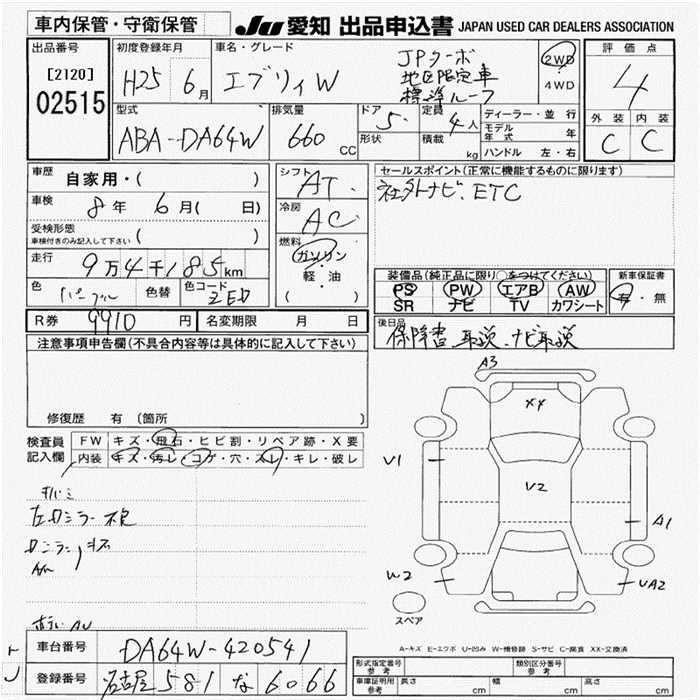 車内保管・守衛保管 JU 愛知 出品申込書 JAPAN USED CAR DEALERS ASSOCIATION
出品番号 初度登録年月 車名・グレード 評価点
[2120] H25 6月 エブリィW JPターボ 2WD 4
02515 地区限定車 4WD
標準ルーフ
型式 排気量 ドア 定員 ディーラー・並行 外装 内装
ABA-DA64W 660 CC 5 4人 モデル年式 年 C C
形状 積載 kg ハンドル 左・右
車歴 自家用・( ) シフト AT セールスポイント(正常に機能するものに限ります)
車検 8年 6月( 日) 冷房 AC 社外ナビ、ETC
受検形態 ( )
車検付きのみ記入して下さい
走行 9万4千185km 燃料 ガソリン
軽・油
( )
色 パープル 色替 色コード ZED
装備品(純正品に限り○をつけてください) 新車保証書
PS PW エアB AW 有・無
SR ナビ TV カワシート
R券 9910円 名変期限 月 日
後日品 保障書 取説、ナビ取説
注意事項申告欄(不具合内容等は具体的に記入して下さい)
修復歴 有 (箇所 )
検査員 FW キズ・飛石・ヒビ割・リペア跡・X要
記入欄 内装 キズ・汚レ・コゲ・穴・スレ・キレ・破レ
A3
XX
U1
U2
A1
W2
UA2
スペア
左ドアミラー不良
A-キズ E-エクボ U-凹み W-補修跡 S-サビ C-腐食 XX-交換済
車台番号 DA64W-420541
登録番号 名古屋 581 な 6066
形式指定番号 参考 類別区分番号 参考
車庫証明用 参考 長さ cm 幅 cm 高さ cm